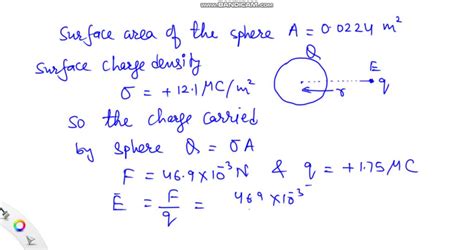 www.BANDICAM.com
Surface area of the sphere A = 0.0224 m²
Surface charge density Q
σ = +12.1 μC/m² E
q
r
So the charge carried
by sphere Q = σA
F = 46.9 × 10⁻³ N & q = +1.75 μC
E = F/q = 46.9 × 10⁻³